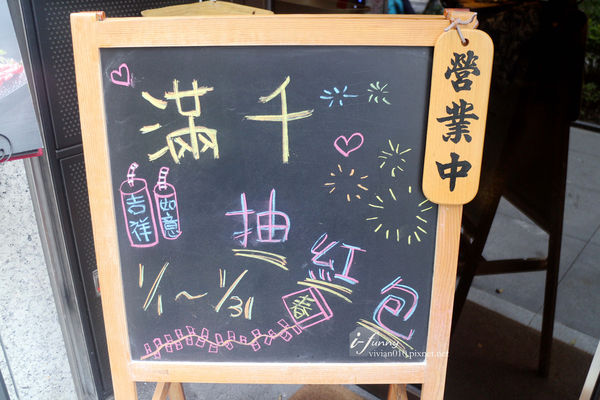 營業中
滿千
吉祥
如意
抽
紅
包
1/1～1/31
春
i-Junny
vivian010.pixnet.net